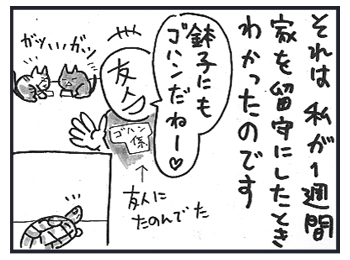 それは 私が1週間
家を留守にしたとき
わかったのです
鉢子にも
ゴハンだねー♡
友人
ゴハン係
↑
友人に
たのんでた
ガッいいガッ